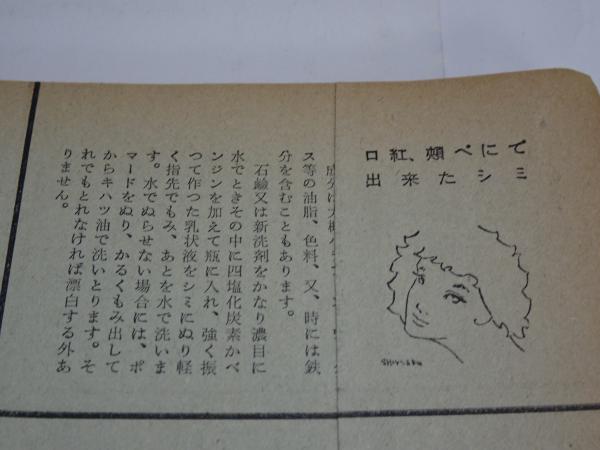 口紅、頬べにで
出来たシミ
成分は大概
ス等の油脂、色料、又、時には鉄
分を含むこともあります。
石鹸又は新洗剤をかなり濃目に
水でときその中に四塩化炭素かベ
ンジンを加えて瓶に入れ、強く振
つて作つた乳状液をシミにぬり軽
く指先でもみ、あとを水で洗いま
す。水でぬらせない場合には、ポ
マードをぬり、かるくもみ出して
からキハツ油で洗いとります。そ
れでもとれなければ漂白する外あ
りません。